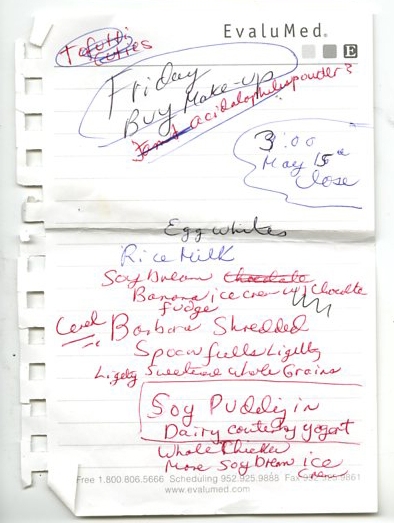 EvaluMed®
E
Tofutti
Cuties
Friday
Buy Make-up
acidalophiluspowder?
3:00
May 15
Close
Egg whites
Rice Milk
Soy Dream Chocolate
Banana ice crem w/ Chocolate
fudge
Cereal Barbara Shredded
Spoonfulls Ligetly
Ligetly Sweetend whole Grains
Soy Pudding in
Dairy counter by yogart
Whole Chicken
More Soy Dream ice
Cream
Free 1.800.806.5666 Scheduling 952.925.9888 Fax 952.9861
www.evalumed.com